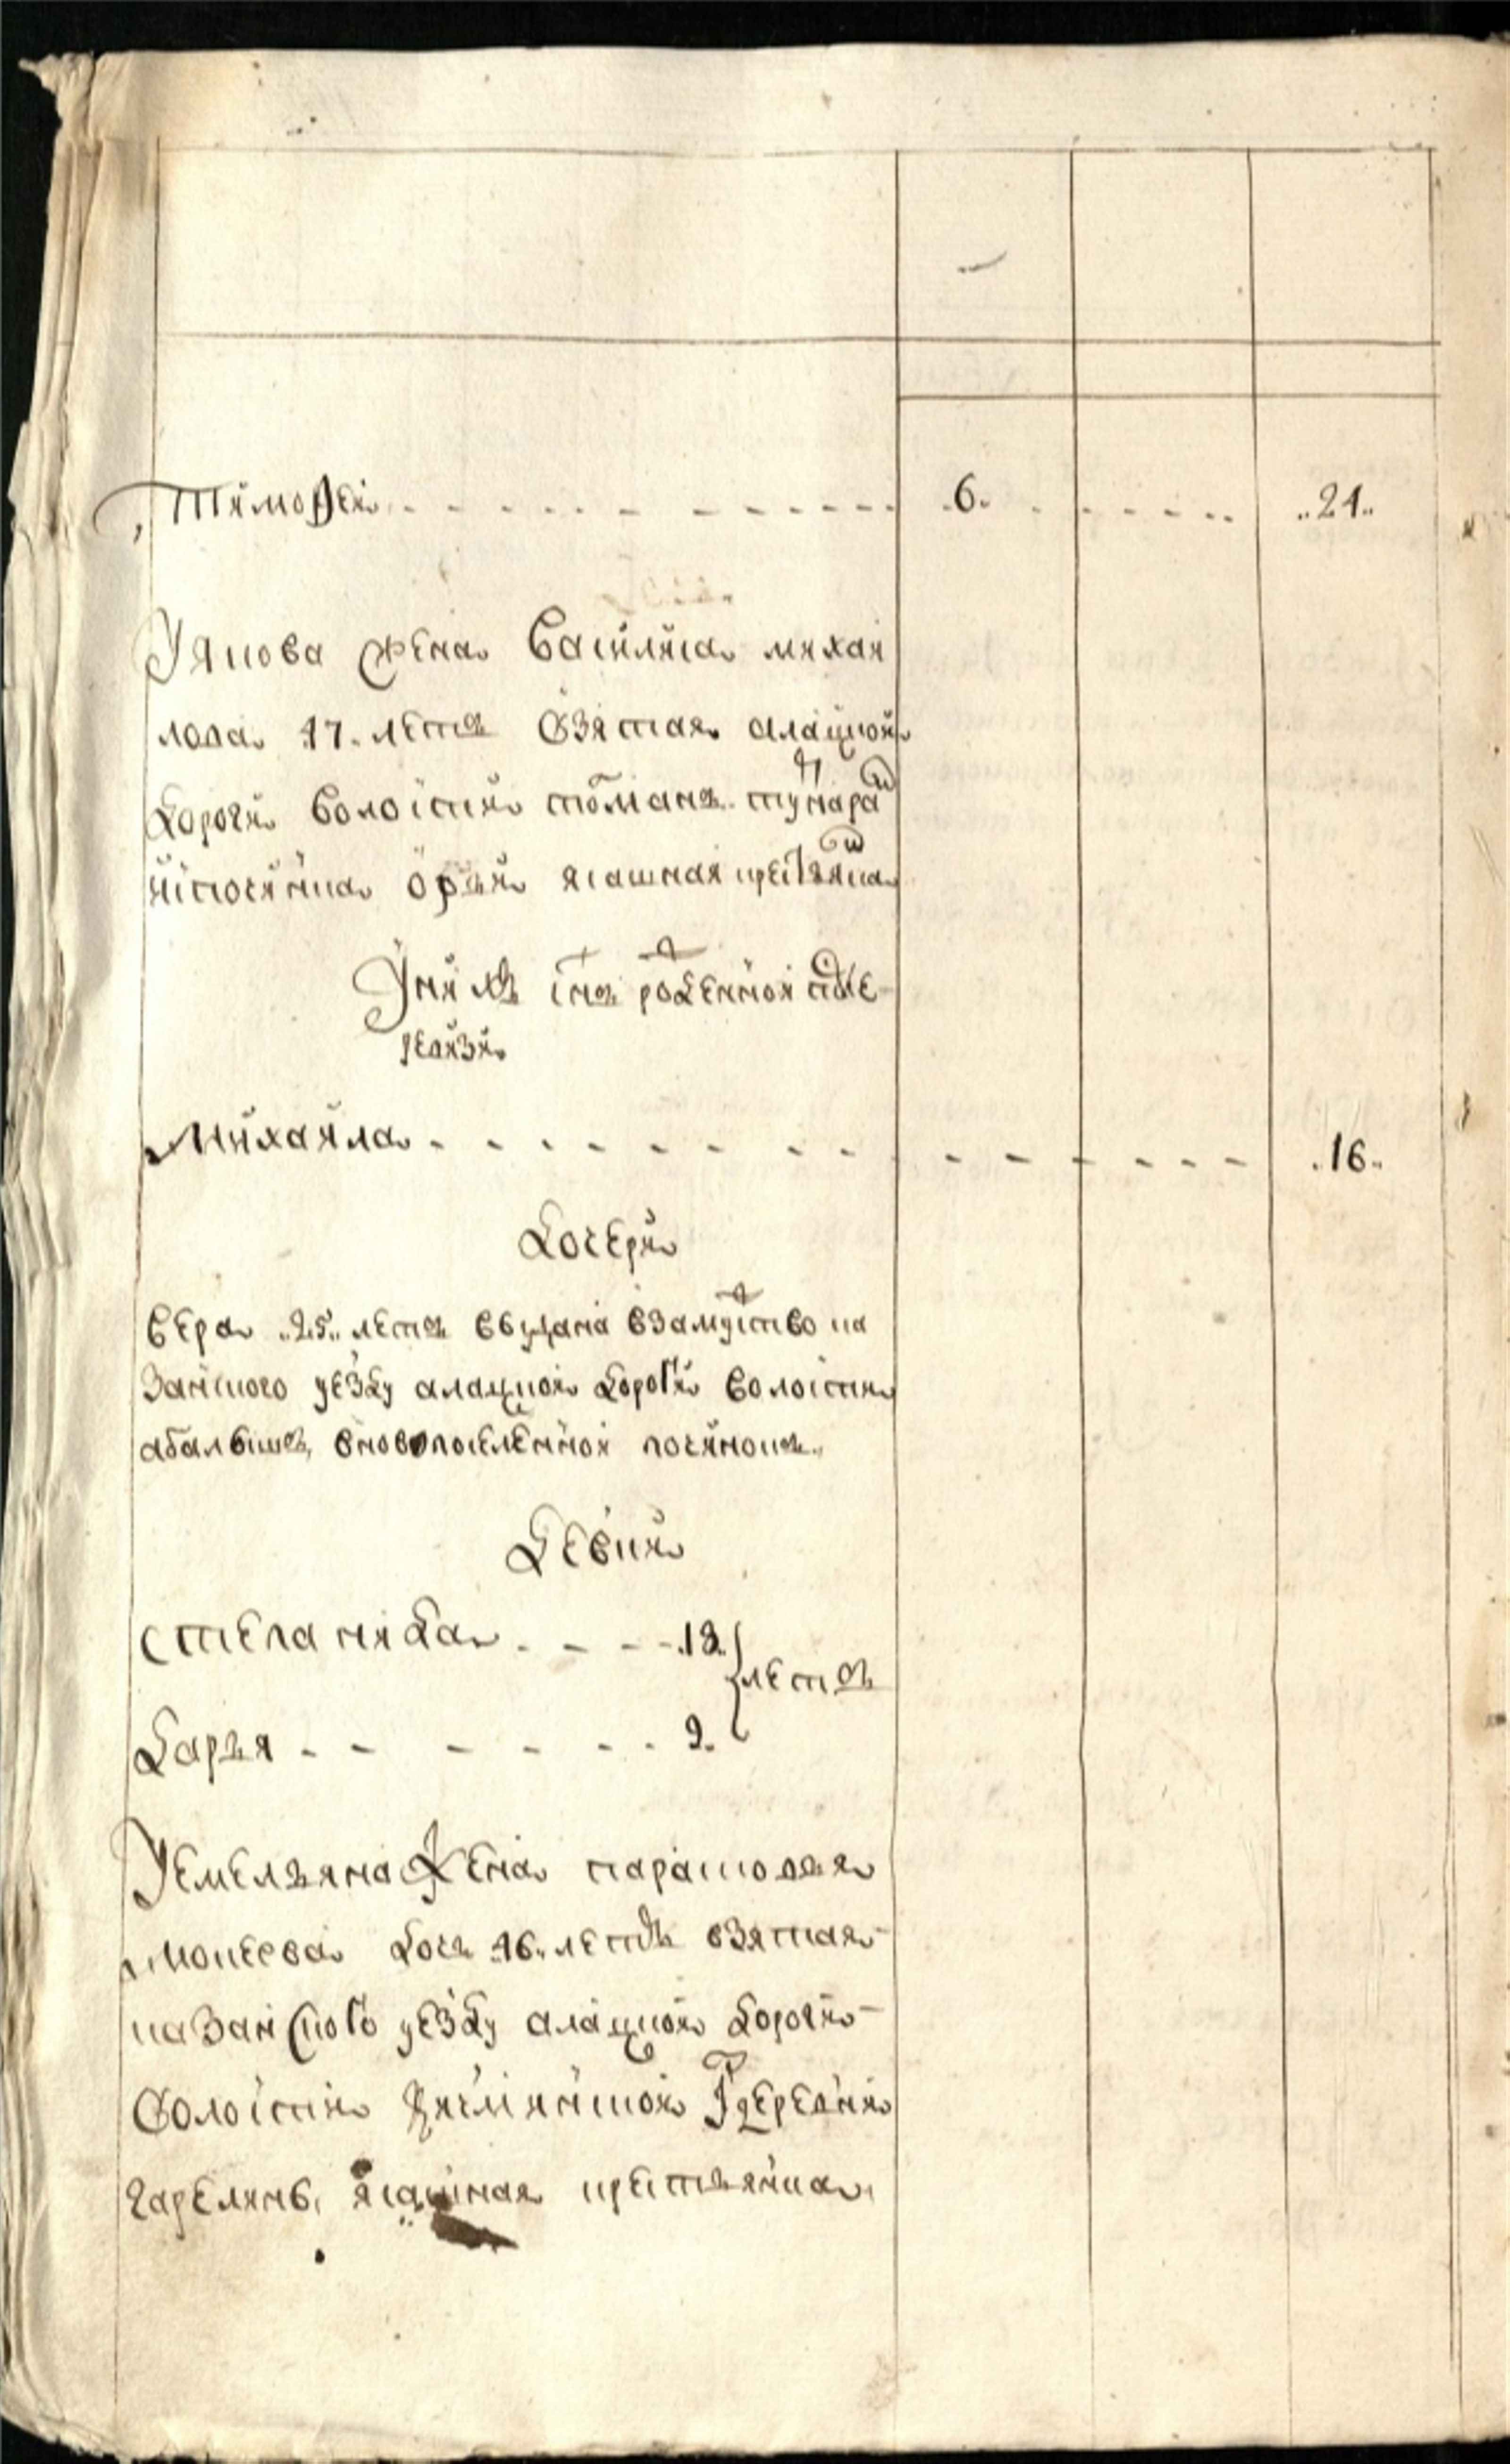 Тимофеи 6. 21.
У якова жена василиса михаи
лова 17. летъ взятая алацкои
дороги волости
ясашная крестьянка
У нихъ снъ рожденной после
ревизи
Михаила 16.
дочери
вера 25. летъ выдана взамужство ка
занского уезду алацкои дороги волости
вновопоселенной починокъ
девки
степанида 13.
летъ
дарья 9.
У емельяна жена парасковья
мокеева дочь 16. летъ взятая
казанского уезду алацкои дороги
волости деревни
ясашная крестьянка